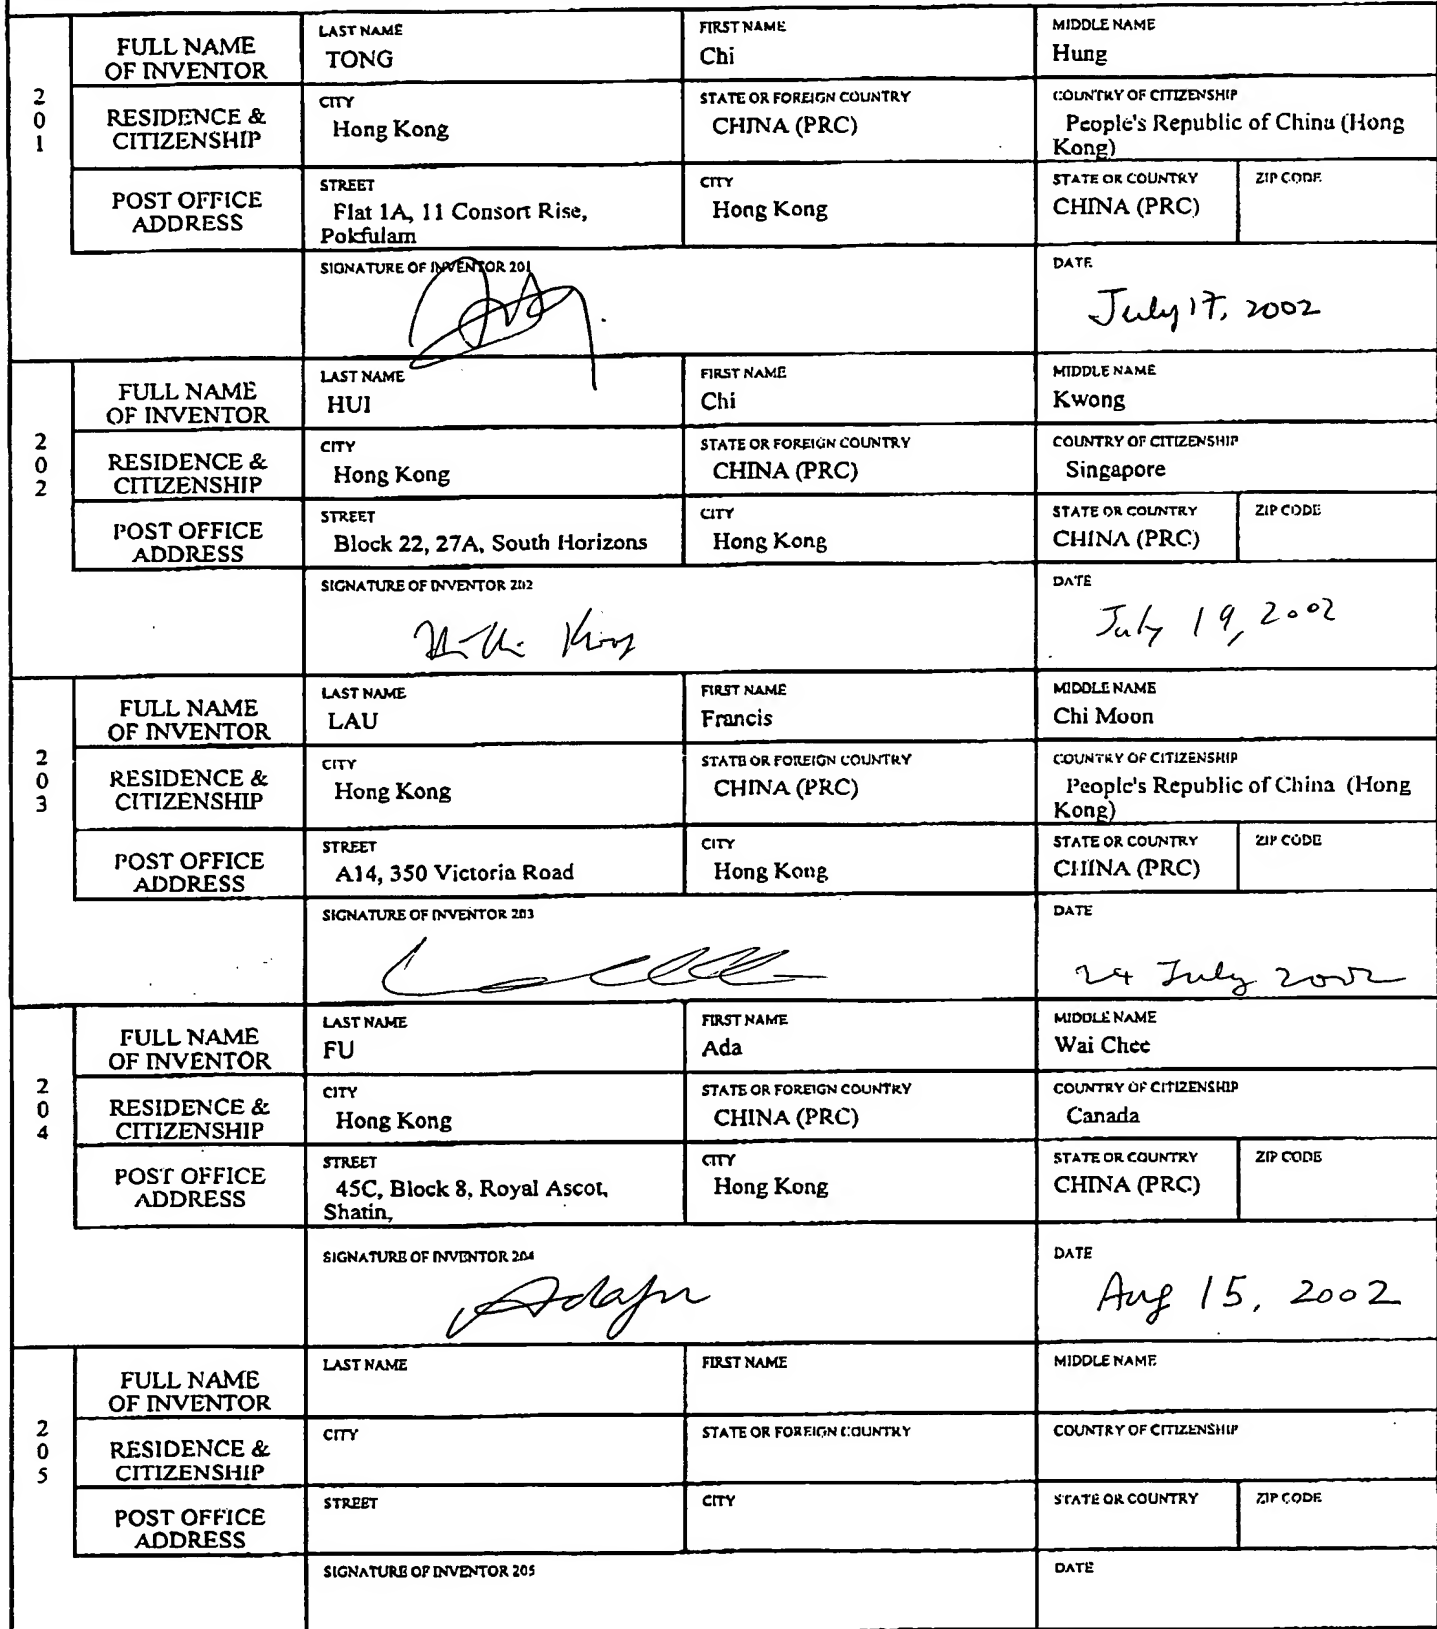 201
FULL NAME OF INVENTOR
LAST NAME
TONG
FIRST NAME
Chi
MIDDLE NAME
Hung
RESIDENCE & CITIZENSHIP
CITY
Hong Kong
STATE OR FOREIGN COUNTRY
CHINA (PRC)
COUNTRY OF CITIZENSHIP
People's Republic of China (Hong
Kong)
POST OFFICE ADDRESS
STREET
Flat 1A, 11 Consort Rise,
Pokfulam
CITY
Hong Kong
STATE OR COUNTRY
CHINA (PRC)
ZIP CODE
SIGNATURE OF INVENTOR 201
DATE
July 17, 2002
202
FULL NAME OF INVENTOR
LAST NAME
HUI
FIRST NAME
Chi
MIDDLE NAME
Kwong
RESIDENCE & CITIZENSHIP
CITY
Hong Kong
STATE OR FOREIGN COUNTRY
CHINA (PRC)
COUNTRY OF CITIZENSHIP
Singapore
POST OFFICE ADDRESS
STREET
Block 22, 27A, South Horizons
CITY
Hong Kong
STATE OR COUNTRY
CHINA (PRC)
ZIP CODE
SIGNATURE OF INVENTOR 202
DATE
July 19, 2002
203
FULL NAME OF INVENTOR
LAST NAME
LAU
FIRST NAME
Francis
MIDDLE NAME
Chi Moon
RESIDENCE & CITIZENSHIP
CITY
Hong Kong
STATE OR FOREIGN COUNTRY
CHINA (PRC)
COUNTRY OF CITIZENSHIP
People's Republic of China (Hong
Kong)
POST OFFICE ADDRESS
STREET
A14, 350 Victoria Road
CITY
Hong Kong
STATE OR COUNTRY
CHINA (PRC)
ZIP CODE
SIGNATURE OF INVENTOR 203
DATE
24 July 2002
204
FULL NAME OF INVENTOR
LAST NAME
FU
FIRST NAME
Ada
MIDDLE NAME
Wai Chee
RESIDENCE & CITIZENSHIP
CITY
Hong Kong
STATE OR FOREIGN COUNTRY
CHINA (PRC)
COUNTRY OF CITIZENSHIP
Canada
POST OFFICE ADDRESS
STREET
45C, Block 8, Royal Ascot,
Shatin,
CITY
Hong Kong
STATE OR COUNTRY
CHINA (PRC)
ZIP CODE
SIGNATURE OF INVENTOR 204
Adafu
DATE
Aug 15, 2002
205
FULL NAME OF INVENTOR
LAST NAME
FIRST NAME
MIDDLE NAME
RESIDENCE & CITIZENSHIP
CITY
STATE OR FOREIGN COUNTRY
COUNTRY OF CITIZENSHIP
POST OFFICE ADDRESS
STREET
CITY
STATE OR COUNTRY
ZIP CODE
SIGNATURE OF INVENTOR 205
DATE